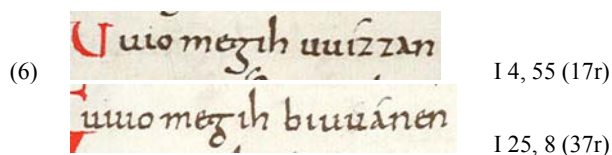 (6) Uuuio megih uuízzan I 4, 55 (17r)
uuio megih biuuánen I 25, 8 (37r)